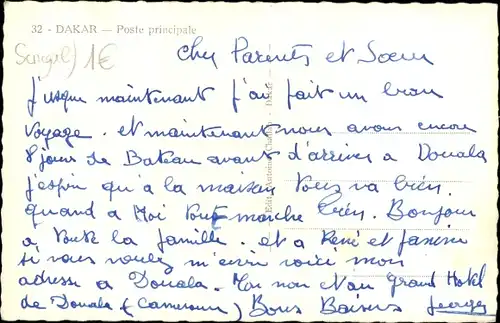 32 - DAKAR — Poste principale
Senegal) 1€
Cher Parents et Soeur
J'usque maintenant j'ai fait un bon
voyage. et maintenant nous avons encore
8 jours de Bateau avant d'arriver a Douala
j'espin qu'a la maison tout va bien.
quand a Moi tout marche bien. Bonjour
a toute la famille. et a René et Janine
si vous voulez m'ecrir voici mon
adresse a Douala. Moi non et au Grand Hotel
de Douala (Cameroun) Bons Baisers Georges